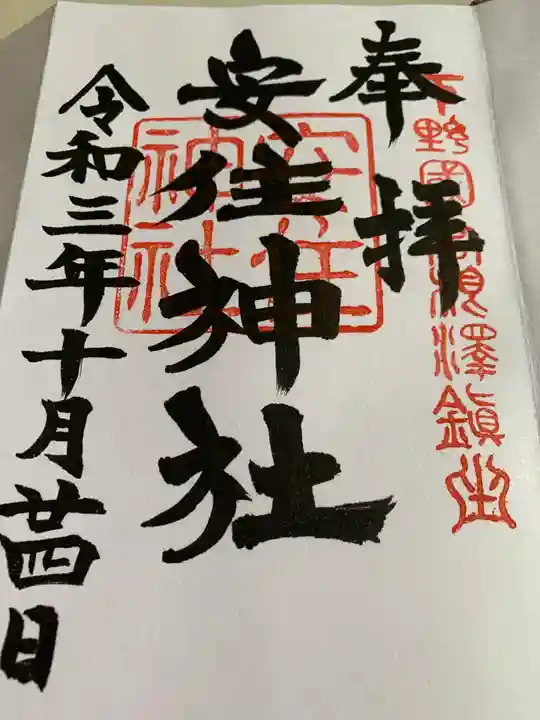 奉拝
下野國高根澤鎮坐
安住神社
安住
神社
令和三年十月廿四日